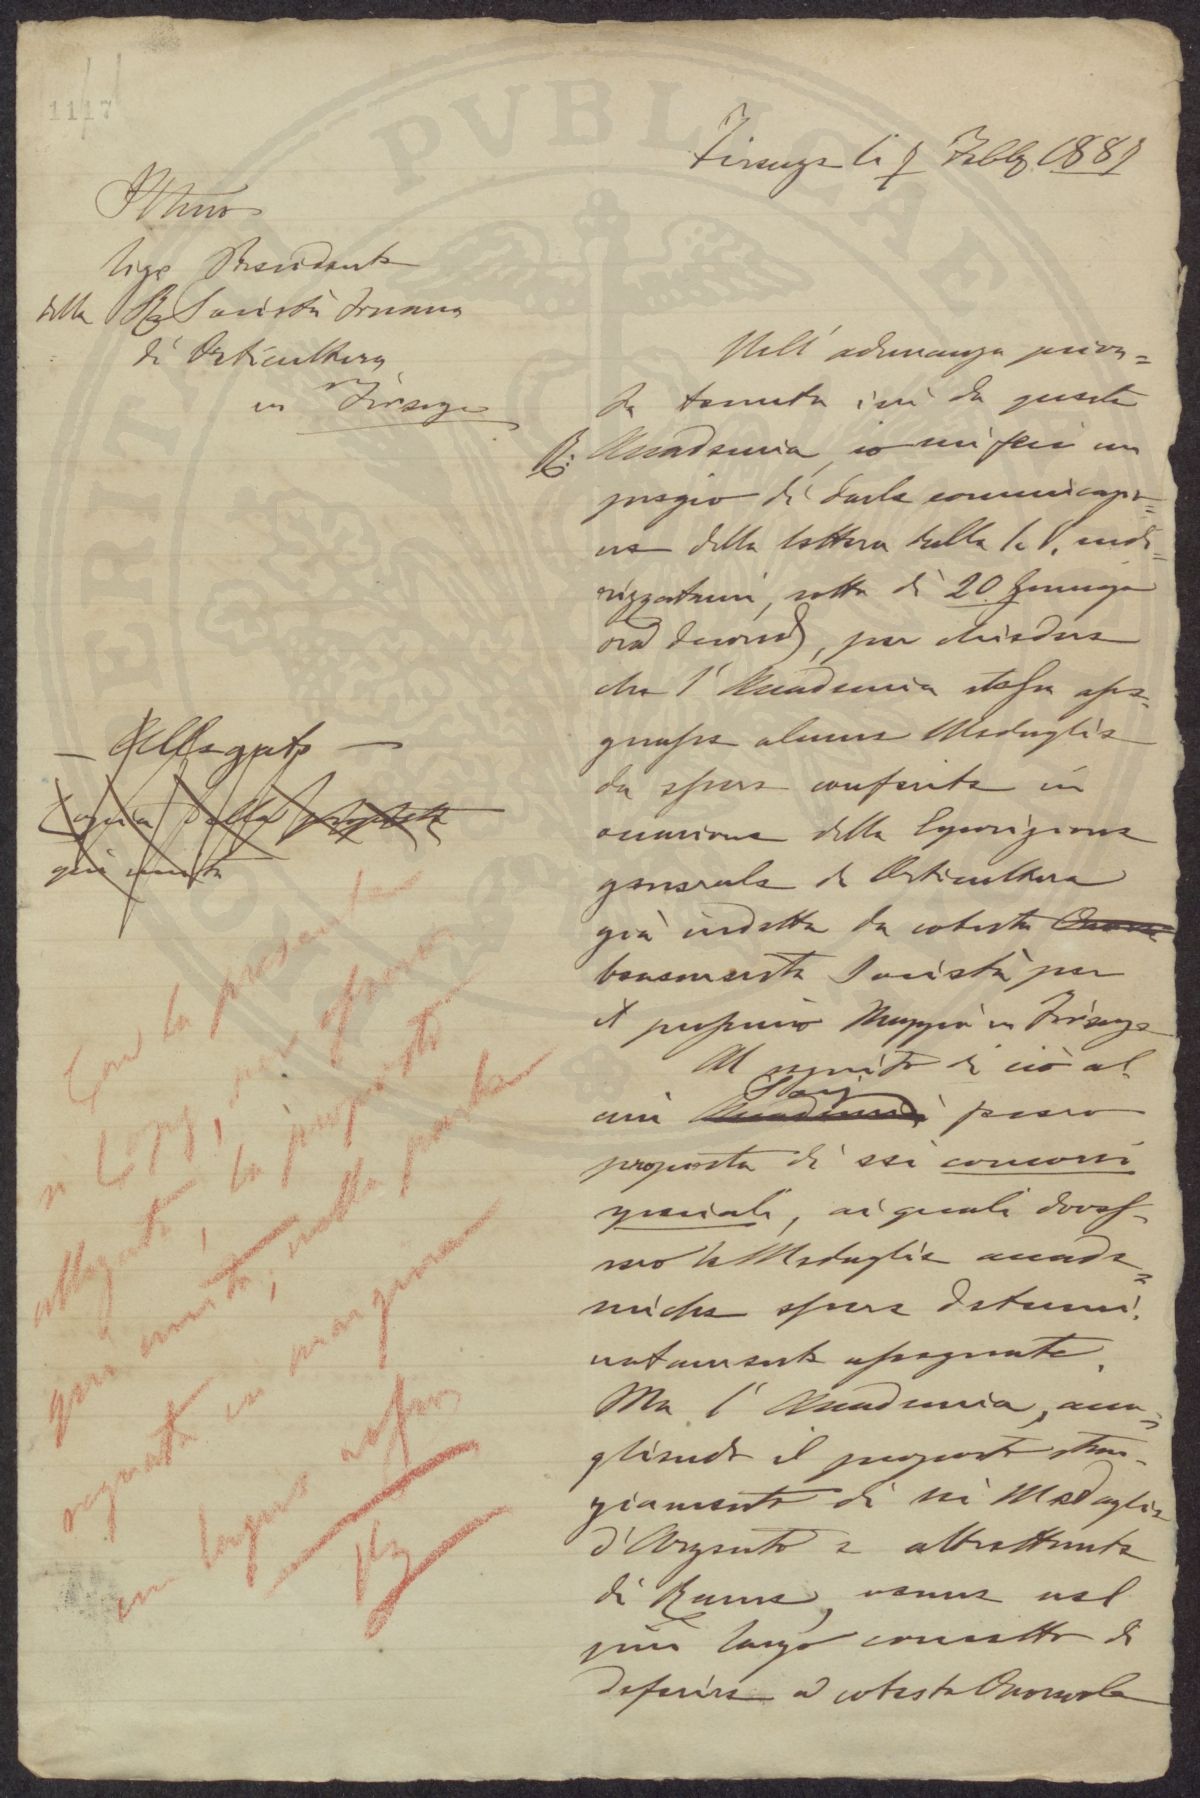 1117
Firenze li 7 Febb. 1887
Illmo
Sige Presidente
della R. Società Toscana
di Orticultura
in Firenze
Nell' adunanza priva=
ta tenuta ieri da questa
R. Accademia, io mi feci un
pregio di darle comunicazio=
ne della lettera della S. V. indi=
rizzatami, sotto dì 20 Gennajo
ora decorso, per chiedere
che l' Accademia stessa asse=
gnasse alcune Medaglie
da essere conferite in
occasione della Esposizione
generale di Orticultura
già indetta da cotesta
benemerita Società per
il prossimo Maggio in Firenze
Al seguito di ciò al=
cuni Soci Accademici fecero
proposta di sei concorsi
speciali, ai quali doves=
sero le Medaglie accade=
miche essere determi=
natamente assegnate.
Ma l' Accademia, acco=
gliendo il proposto stan=
ziamento di sei Medaglie
d'Argento e altrettante
di Rame, venne nel
più largo concetto di
deferire a cotesta Onorevole
— Allegato —
Copia della proposta
qui unita
Con la presente
si copy, per esservi
allegata, la proposta
qui unita, nella parte
segnata in margine
in lapis rosso